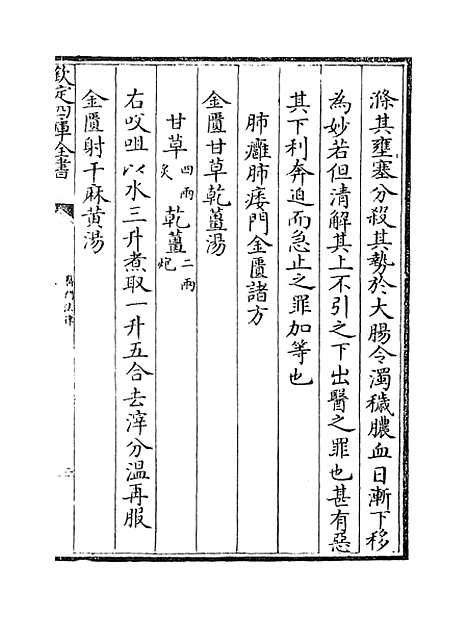 滌其壅塞分殺其勢於大腸令濁穢膿血日漸下移
為妙若但清解其上不引之下出醫之罪也甚有惡
其下利奔迫而急止之罪加等也
肺癰肺痿門金匱諸方
金匱甘草乾薑湯
甘草四兩炙 乾薑二兩炮
右㕮咀以水三升煮取一升五合去滓分溫再服
金匱射干麻黄湯
欽定四庫全書
醫門法律